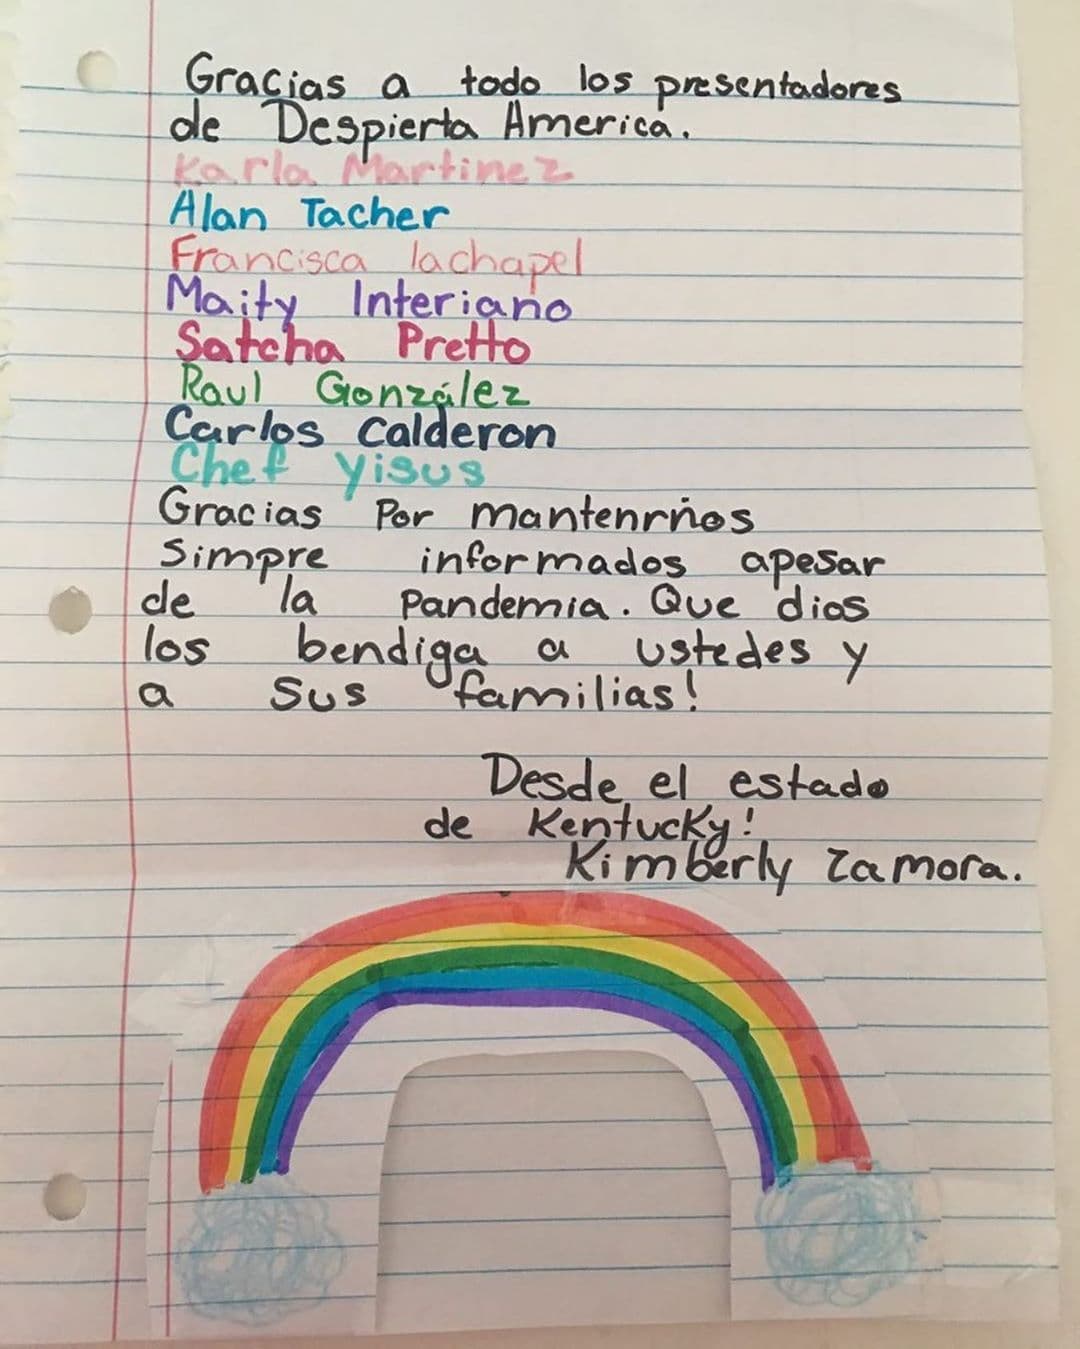 Gracias a todo los presentadores
de Despierta America.
Karla Martinez
Alan Tacher
Francisca lachapel
Maity Interiano
Satcha Pretto
Raul González
Carlos Calderon
Chef Yisus
Gracias Por mantenrnos
Simpre informados apesar
de la Pandemia. Que dios
los bendiga a ustedes y
a sus familias!
Desde el estado
de Kentucky!
Kimberly Zamora.